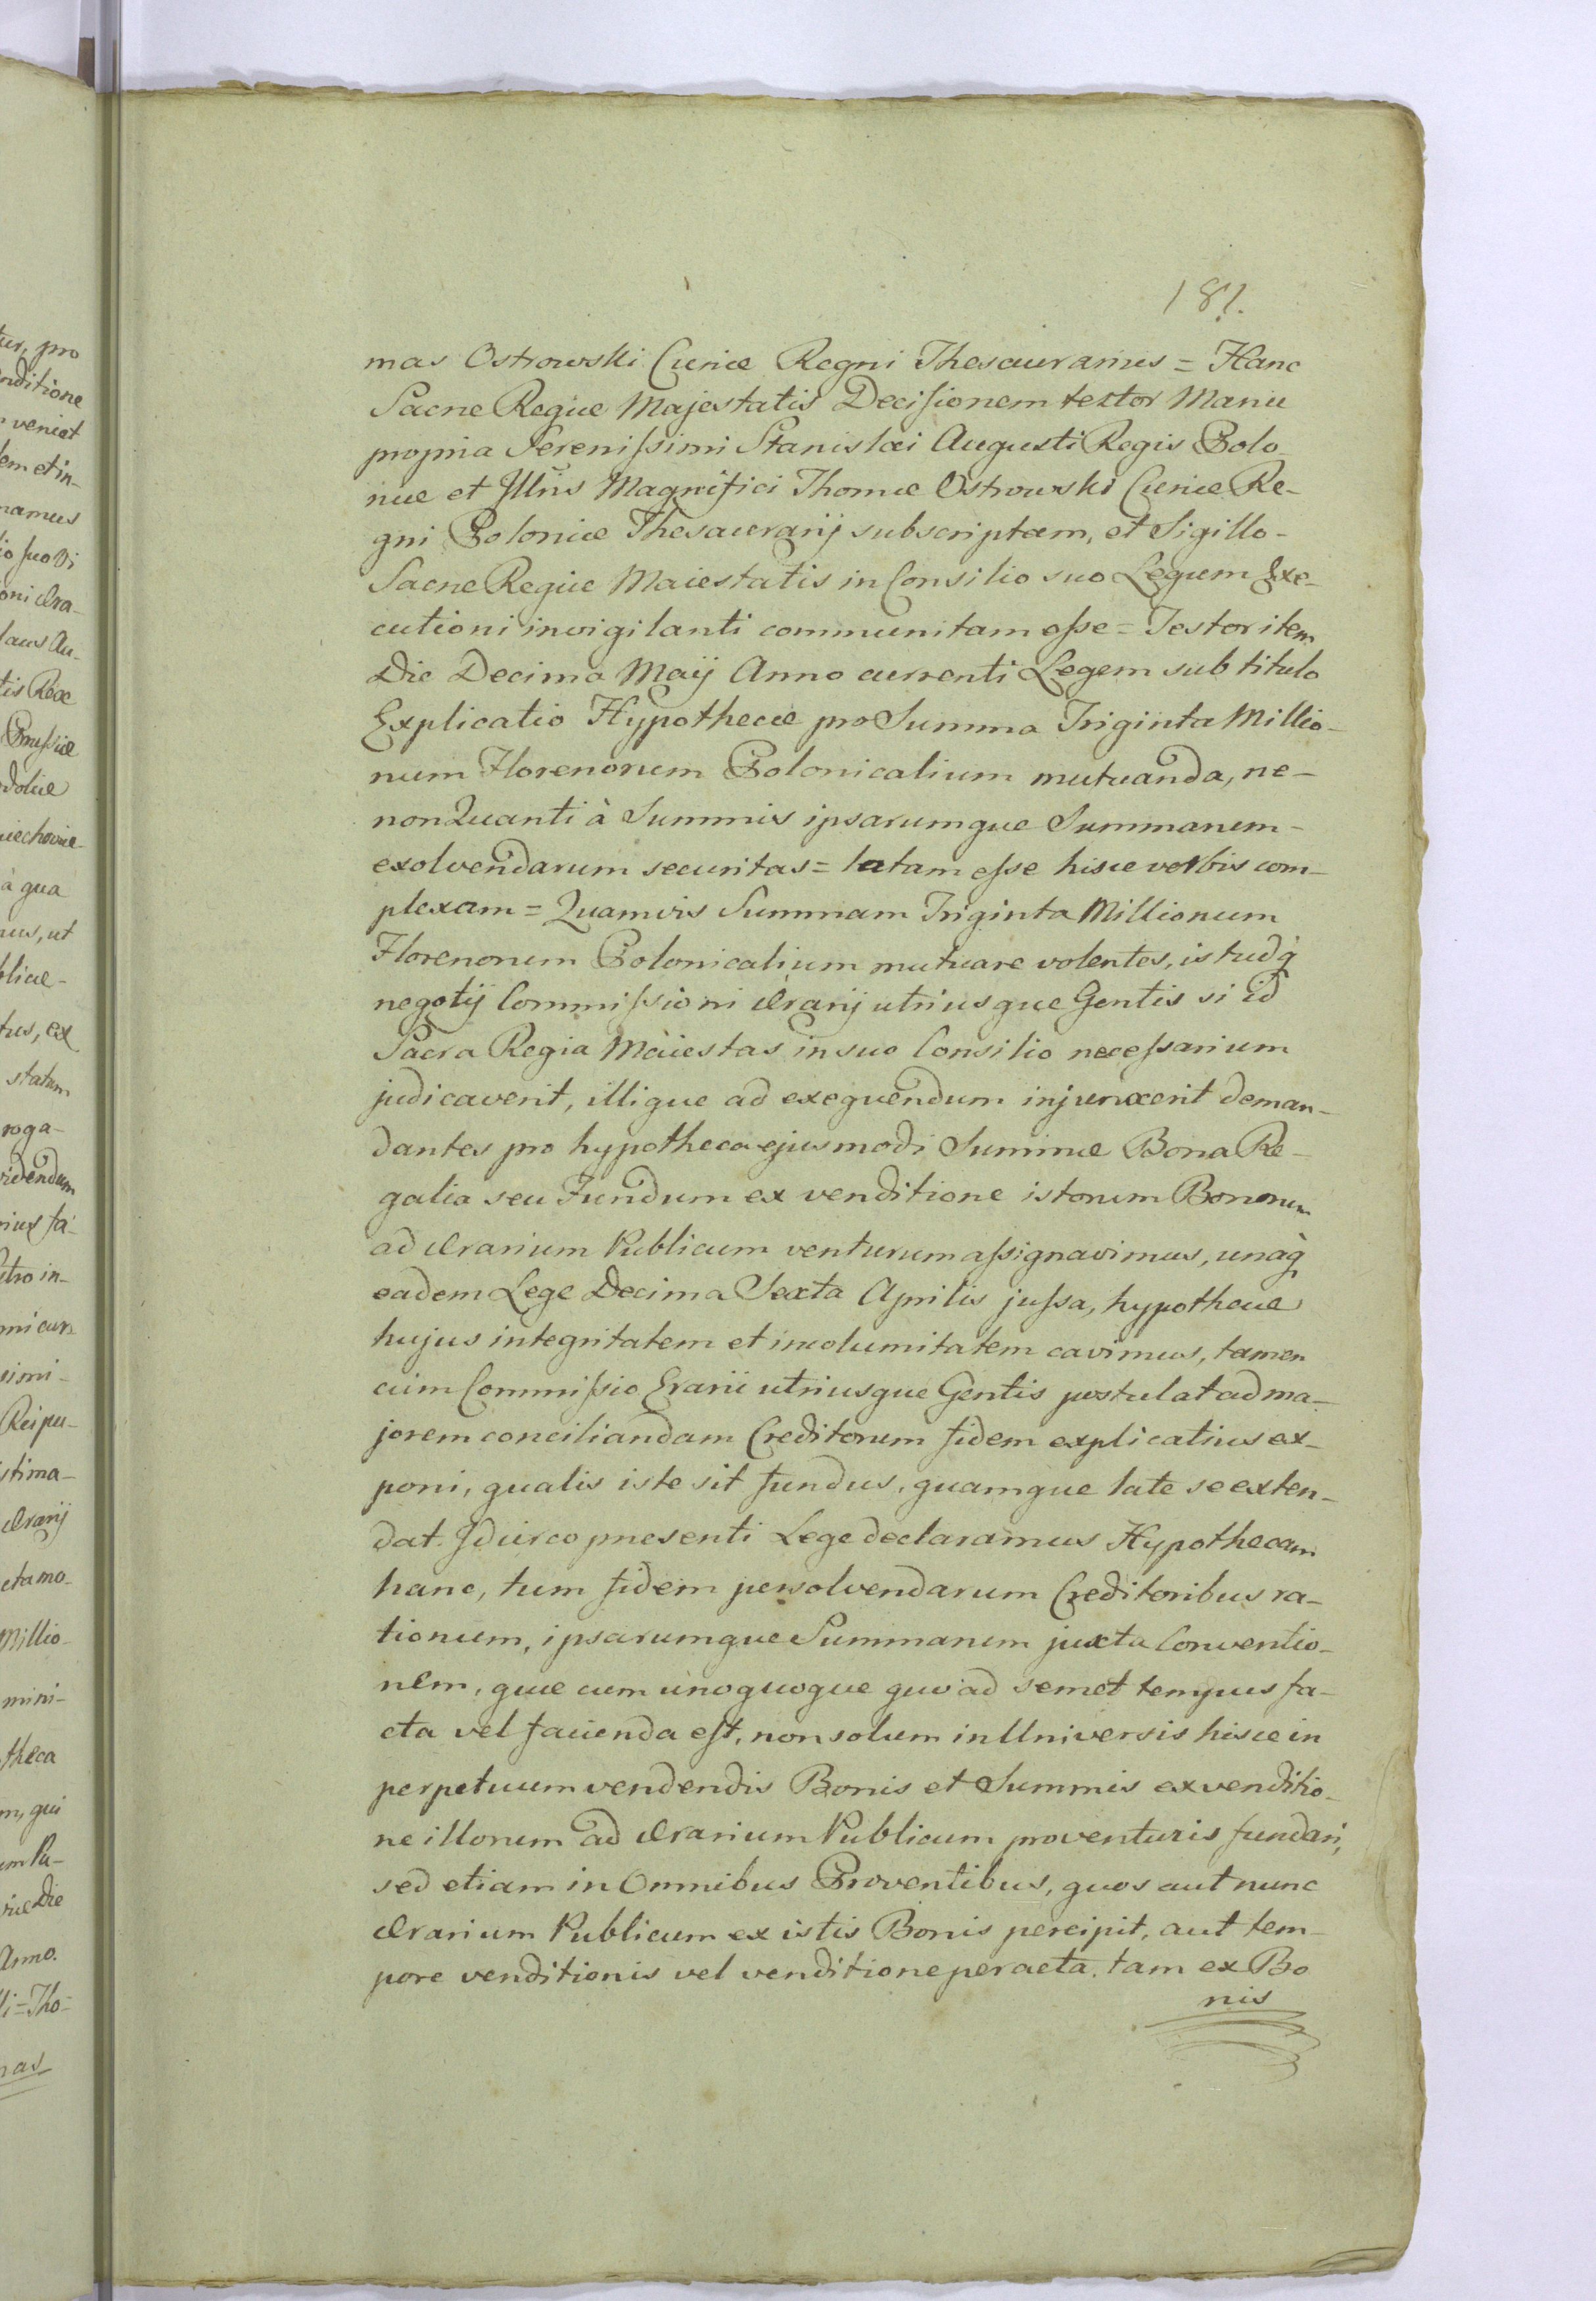 181.
mas Ostrowski Curiæ Regni Thesaurarius = Hanc
Sacræ Regiæ Majestatis Decisionem testor Manu
propria Serenissimi Stanislai Augusti Regis Polo-
niæ et Jllris Magnifici Thomæ Ostrowski Curiæ Re-
gni Poloniæ Thesaurarij subscriptam, et Sigillo-
Sacræ Regiæ Maiestatis in Consilio suo Legum Exe-
cutioni invigilanti communitam esse = Testor item
Die Decima Maij Anno currenti Legem sub titulo
Explicatio Hypothecæ pro Summa Triginta Millio-
num Florenorum Polonicalium mutuanda, ne-
non Quanti à Summis ipsarumque Summarum-
exolvendarum securitas = latam esse hisce verbis com-
plexam = Quamvis Summam Triginta Millionum
Florenorum Polonicalium mutuare volentes, istudq
negotij Commissioni Ærarij utriusque Gentis si id
Sacra Regia Maiestas in suo Consilio necessarium
judicaverit, illique ad exequendum injunxerit deman-
dantes pro hypotheca ejusmodi Summæ Bona Re-
galia seu Fundum ex venditione istorum Bonorum
ad Ærarium Publicum venturum assignavimus, unaq
eadem Lege Decima Sexta Aprilis jussa, hypothecæ
hujus integritatem et incolumitatem cavimus, tamen
cum Commissio Erarii utriusque Gentis postulat ad ma-
jorem conciliandam Creditorum fidem explicatius ex-
poni, qualis iste sit fundus, quamque late se exten-
dat. Jdcirco præsenti Lege declaramus Hypothecam
hanc, tum fidem persolvendarum Creditoribus ra-
tionum, ipsarumque Summarum juxta Conventio-
nem, quæ cum unoquoque quoad semet tempus fa-
cta vel facienda est, non solum in Universis hisce in
perpetuum vendendis Bonis et Summis ex venditio-
ne illorum ad Ærarium Publicum proventuris fundari,
sed etiam in Omnibus Proventibus, quos aut nunc
Ærarium Publicum ex istis Bonis percipit, aut tem-
pore venditionis vel venditione peracta, tam ex Bo
nis